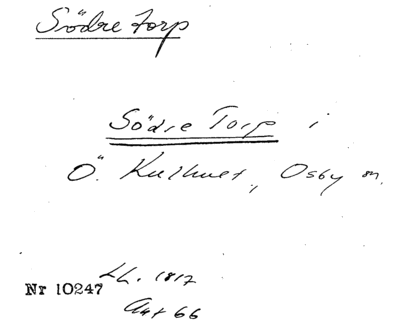 Södre torp
Södre Torp i
Ö. Kulhult, Osby sn.
Lh. 1817
Nr 10247
Akt 66